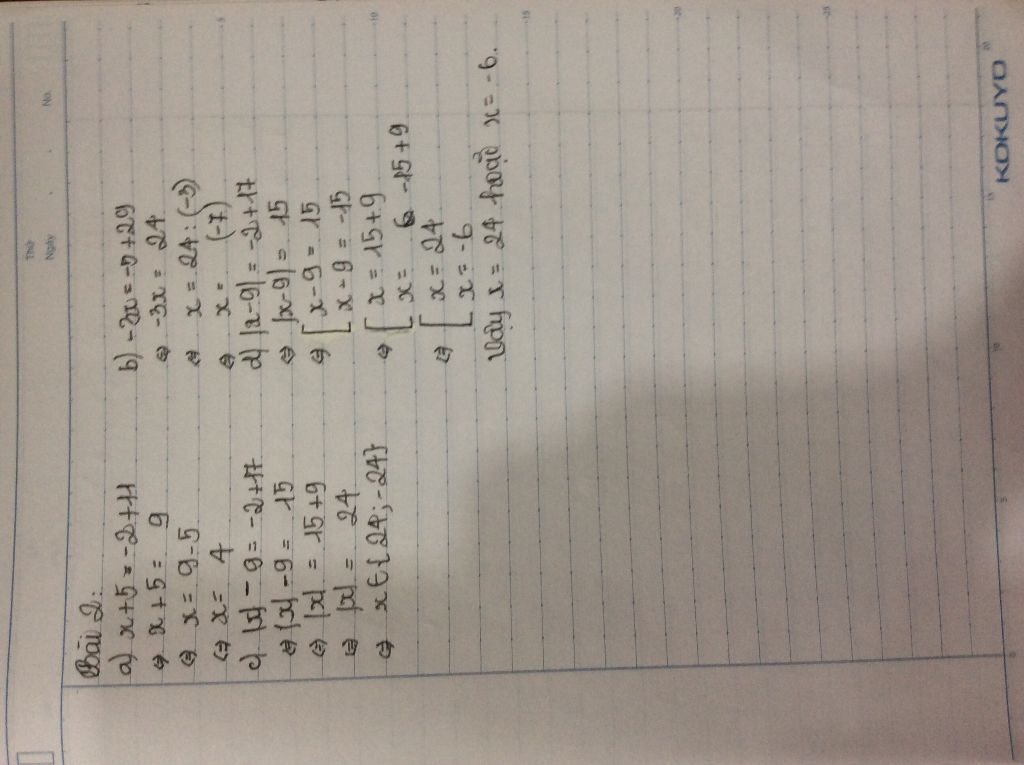 Thứ
Ngày
No.
Bài 2:
a) x+5=-2+11
⇔ x+5 = 9
⇔ x = 9-5
⇔ x = 4
c) |x| - 9 = -2+17
⇔ |x| - 9 = 15
⇔ |x| = 15+9
⇔ |x| = 24
⇔ x ∈ {24; -24}
b) -3x = -5+29
⇔ -3x = 24
⇔ x = 24 : (-3)
⇔ x = (-7)
d) |x-9| = -2+17
⇔ |x-9| = 15
⇔ [ x-9 = 15
x-9 = -15
⇔ [ x = 15+9
x = -15+9
⇔ [ x = 24
x = -6
Vậy x = 24 hoặc x = -6.
5
10
15
20
25
0
5
10
15
20
KOKUYO